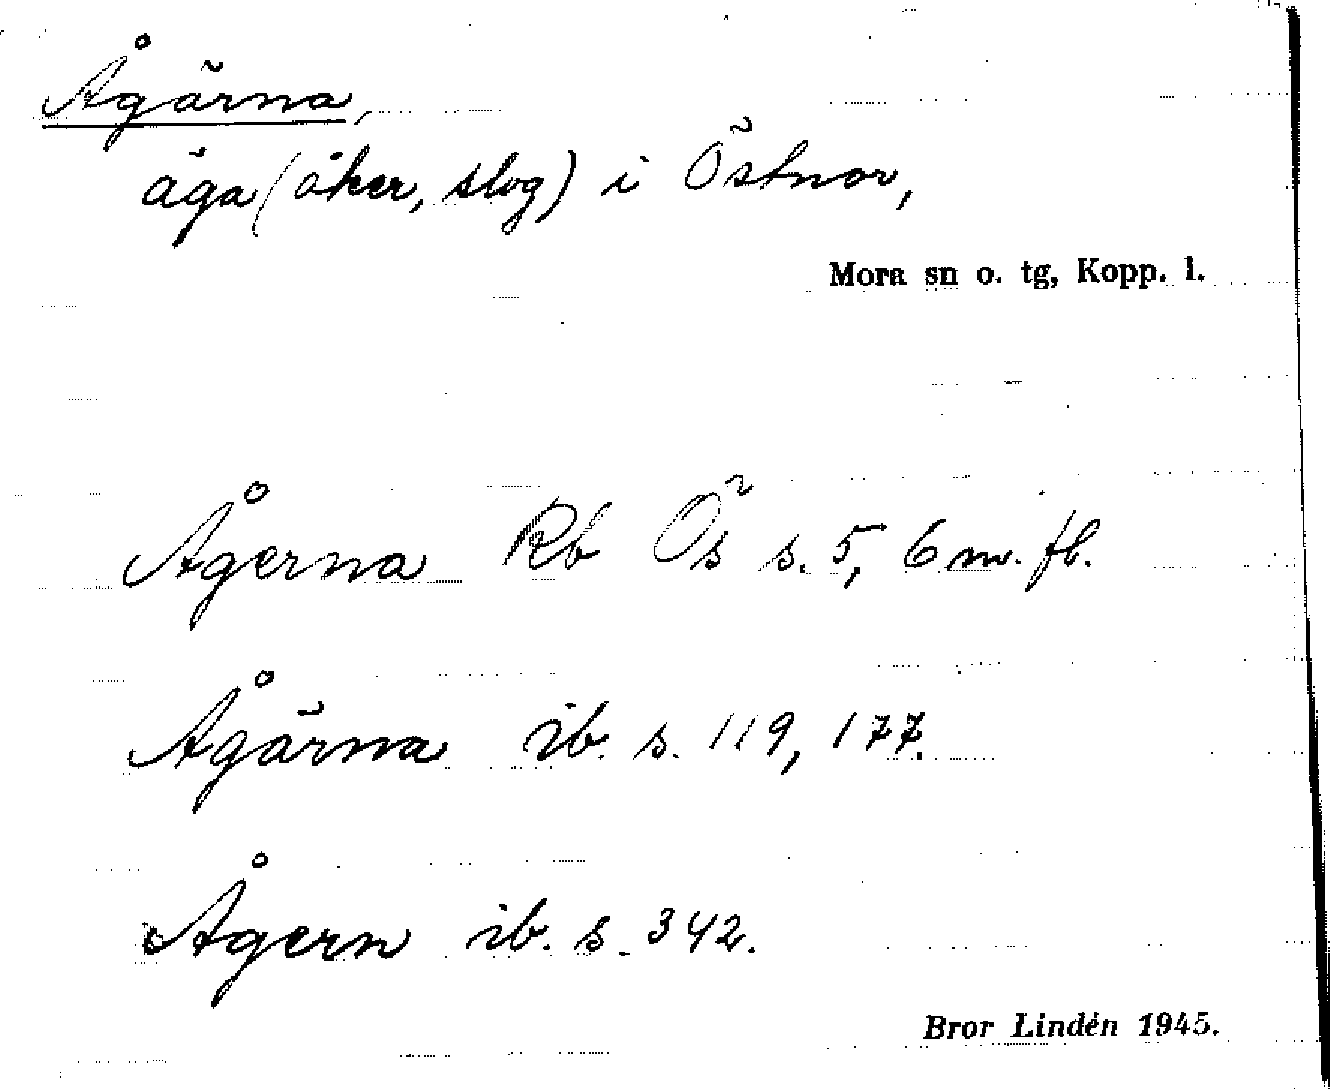 Ågärna,
äga (åker, slog) i Östnor,
Mora sn o. tg, Kopp. l.
Ågerna Rb Ös s. 5, 6 m. fl.
Ågärna ib. s. 119, 177.
Ågern ib. s. 342.
Bror Lindén 1945.